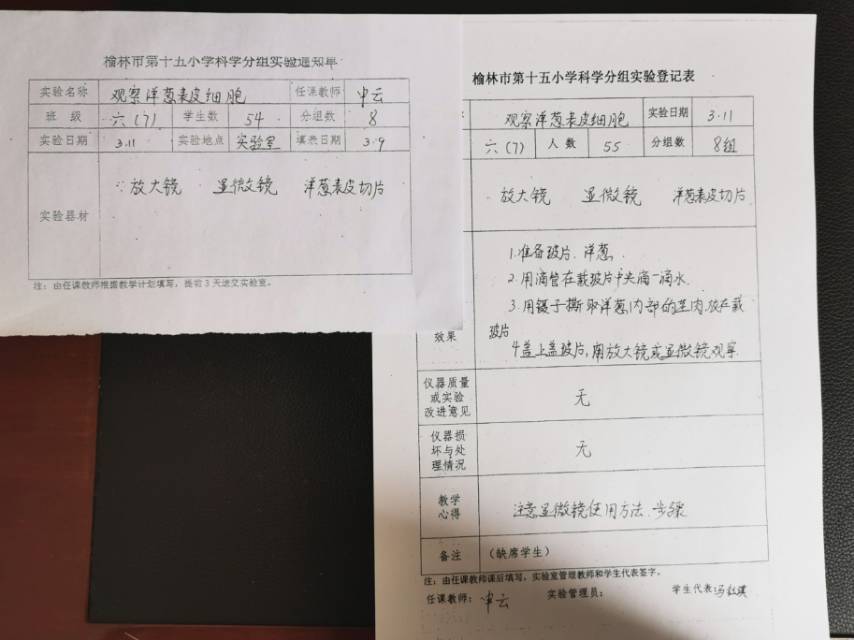 榆林市第十五小学科学分组实验通知单
实验名称 观察洋葱表皮细胞 任课教师 申云
班 级 六(7) 学生数 54 分组数 8
实验日期 3.11 实验地点 实验室 填表日期 3.9
实验器材 放大镜 显微镜 洋葱表皮切片
注：由任课教师根据教学计划填写，提前3天送交实验室。
榆林市第十五小学科学分组实验登记表
观察洋葱表皮细胞 实验日期 3.11
六(7) 人 数 55 分组数 8组
放大镜 显微镜 洋葱表皮切片
1.准备玻片.洋葱.
2.用滴管在载玻片中央滴一滴水.
3.用镊子撕取洋葱内部的茎肉.放在载
玻片
效果
4.盖上盖玻片,用放大镜或显微镜观察.
仪器质量
或实验
改进意见
无
仪器损
坏与处
理情况
无
教学
心得
注意显微镜使用方法.步骤
备注 （缺席学生）
注：由任课教师课后填写，实验室管理教师和学生代表签字。
任课教师： 申云 实验管理员： 学生代表：